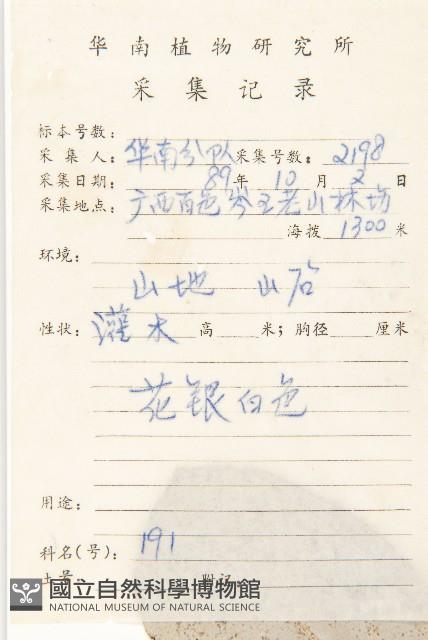 华南植物研究所
采集记录
标本号数：
采集人：华南分队采集号数：2198
采集日期：89年10月2日
采集地点：广西百色岑王老山林场
海拨1300米
环境：
山地 山谷
性状：灌木 高 米；胸径 厘米
花银白色
用途：
科名(号)：191
國立自然科學博物館
NATIONAL MUSEUM OF NATURAL SCIENCE